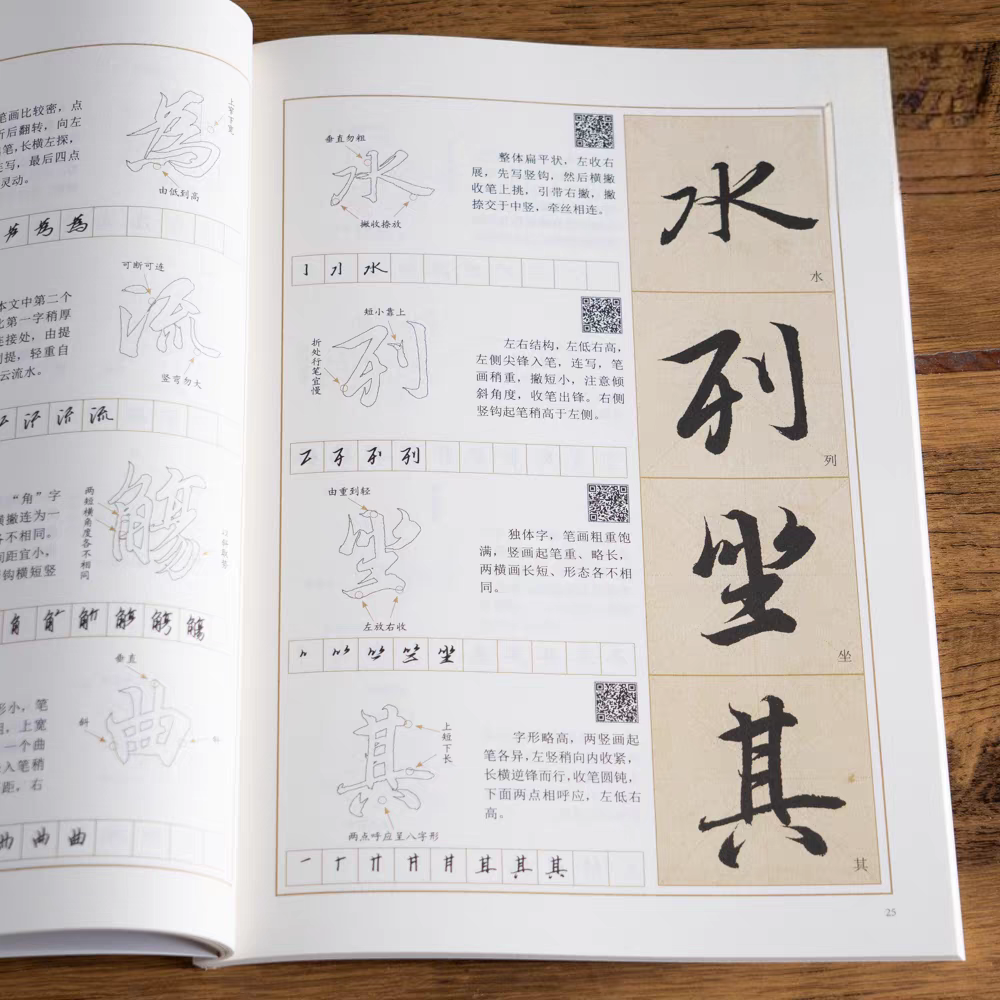 笔画比较密，点
后翻转，向左
笔，长横左探，
写，最后四点
灵动。
上窄下宽
由低到高
本文中第二个
比第一字稍厚
连接处，由提
提，轻重自
云流水。
可断可连
流
竖弯勿大
“角”字
横撇连为一
各不相同。
间距宜小，
钩横短竖
两短横角度各不相同
觞
形小，笔
，上宽
一个曲
入笔稍
距，右
垂直
斜
曲
曲 曲 曲
垂直勿粗
水
撇收捺放
整体扁平状，左收右
展，先写竖钩，然后横撇
收笔上挑，引带右撇，撇
捺交于中竖，牵丝相连。
水
水
水
短小靠上
折处行笔宜慢
列
左右结构，左低右高，
左侧尖锋入笔，连写，笔
画稍重，撇短小，注意倾
斜角度，收笔出锋。右侧
竖钩起笔稍高于左侧。
列
列
列
由重到轻
坐
左放右收
独体字，笔画粗重饱
满，竖画起笔重、略长，
两横画长短、形态各不相
同。
坐
坐
坐
上短下长
其
两点呼应呈八字形
字形略高，两竖画起
笔各异，左竖稍向内收紧，
长横逆锋而行，收笔圆钝，
下面两点相呼应，左低右
高。
其 其 其
其
其
25